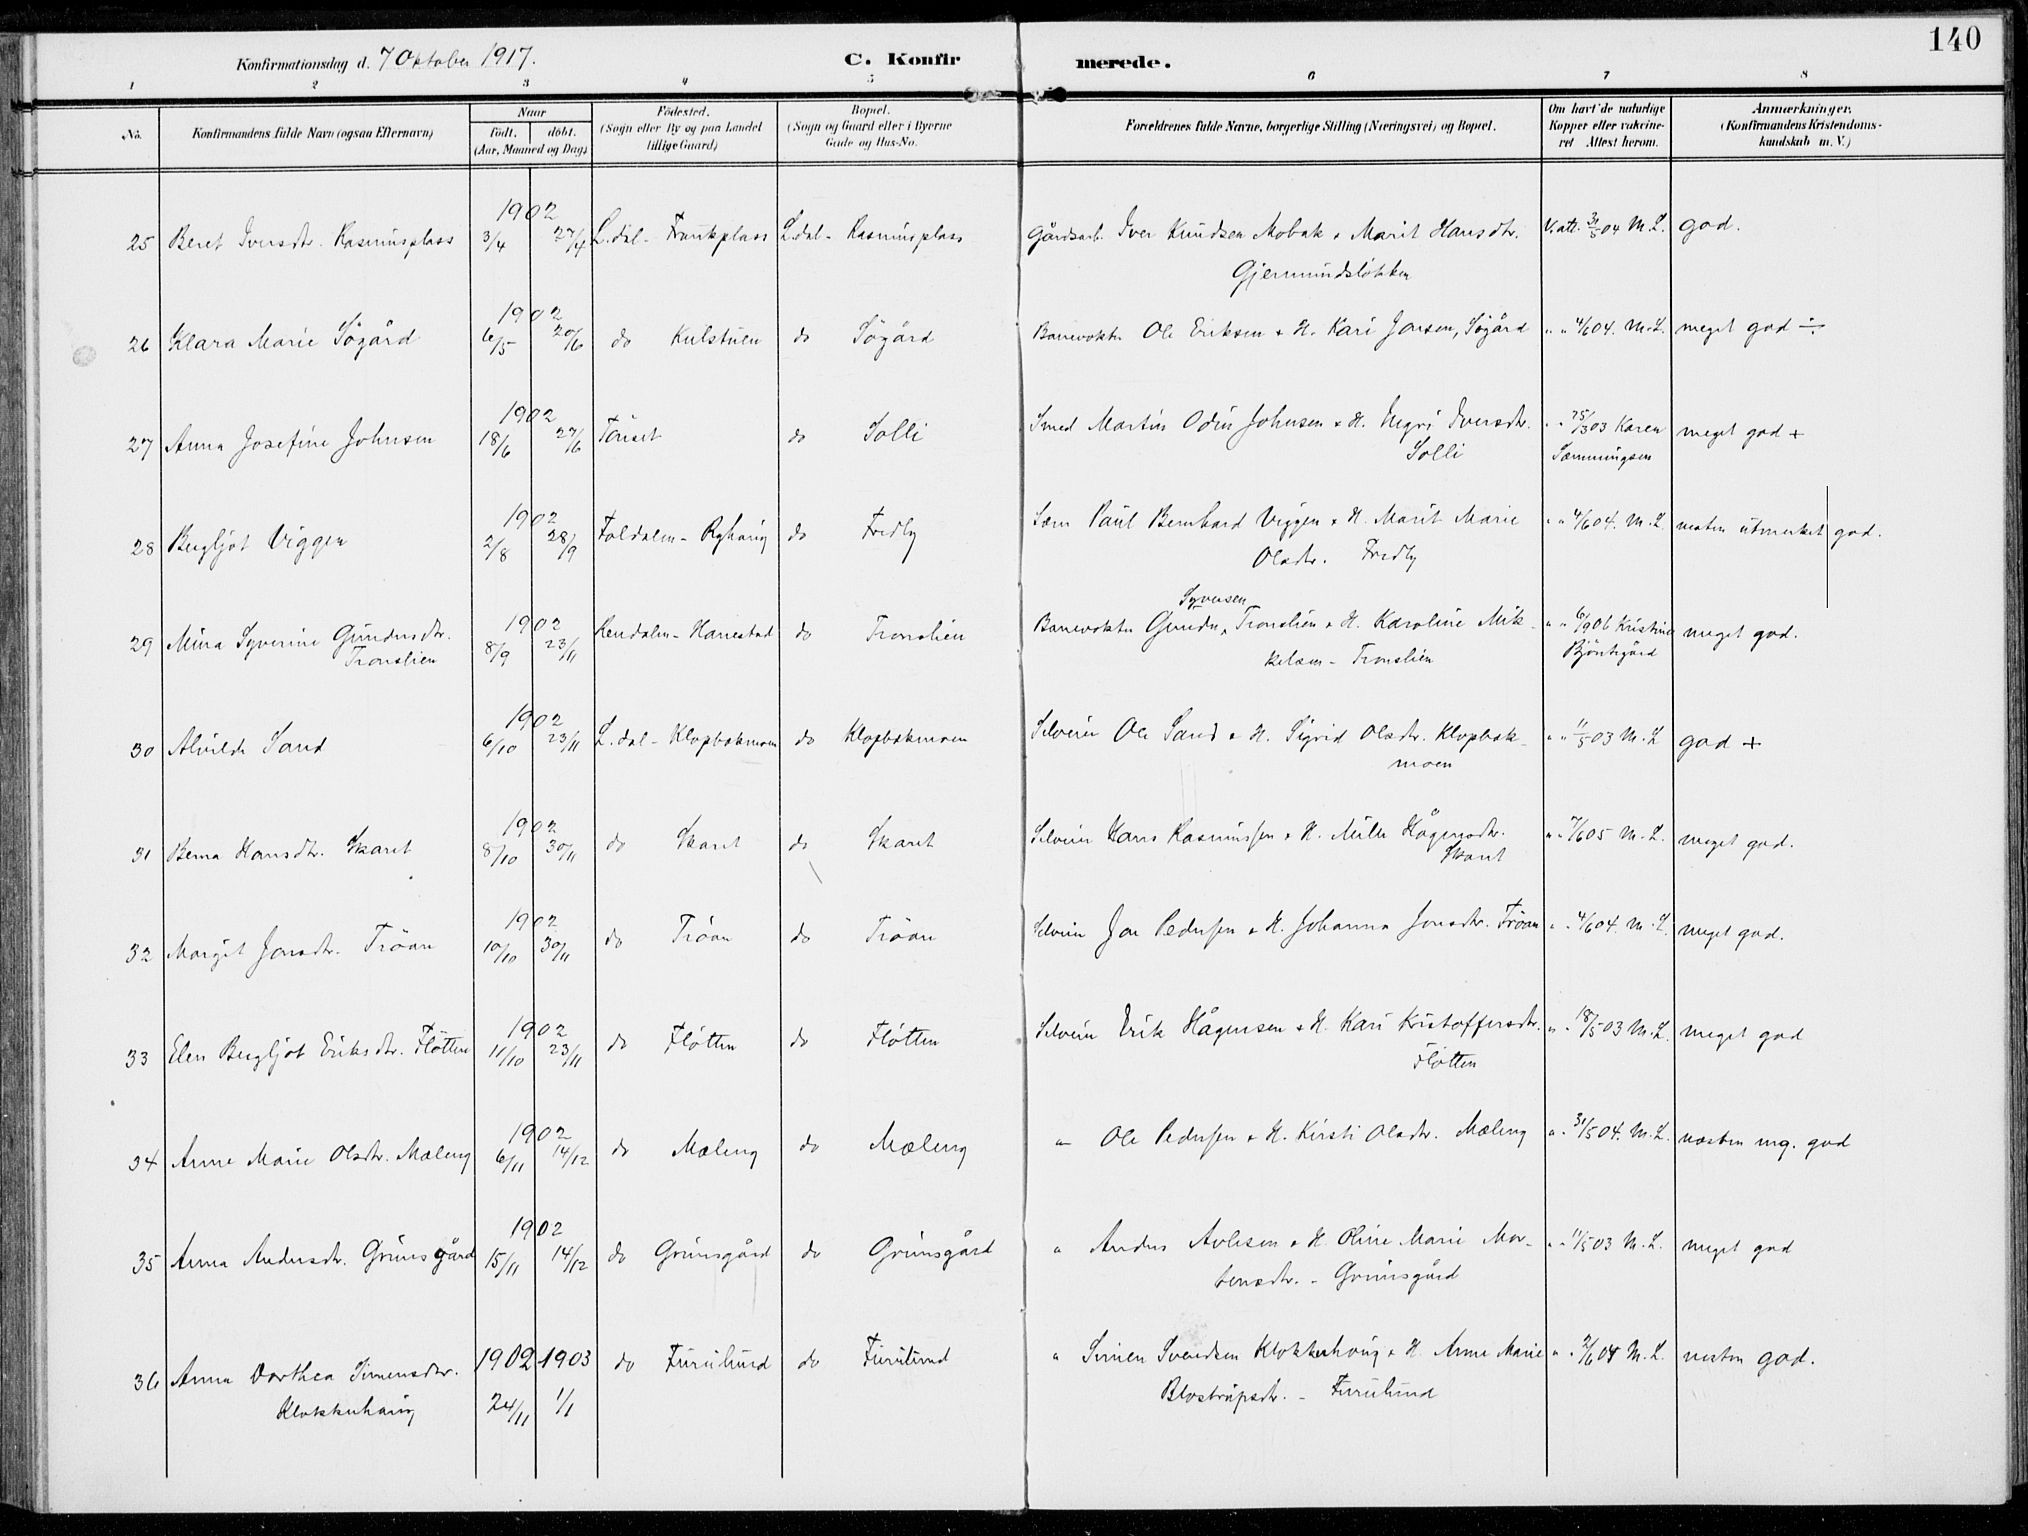 140
Konfirmationsdag d. 7 Oktober 1917. C. Konfirmerede.
1 2 3 4 5 6 7 8
No. Konfirmandens fulde Navn (ogsaa Efternavn) Naar født. døbt. (Aar, Maaned og Dag) Fødested. (Sogn eller By og paa Landet tillige Gaard) Bopæl. (Sogn og Gaard eller i Byerne Gade og Hus-No. Forældrenes fulde Navne, borgerlige Stilling (Næringsvei) og Bopæl. Om havt de naturlige Kopper eller vakcineret Attest herom. Anmærkninger. (Konfirmandens Kristendomskundskab m. V.)
1902
25 Beret Iversdtr. Rasmusplass 3/4 27/4 L.dal - Trønkplass L.dal - Rasmusplass Gårdsarb. Iver Knudsen Mobak & Marit Hansdtr. V. att. 31/5 04 M. L. god.
Gjermundsløkken
1902
26 Klara Marie Søgård 6/5 20/6 do Kulstuen do Søgård Banevokter Ole Eriksen & H. Kari Jonsen, Søgård " " 4/6 04. M. L. meget god ÷
1902
27 Anna Josefine Johnsen 18/6 27/6 Tönset do Solli Smed Martin Odin Johnsen & H. Ingri Iversdtr. " " 25/3 03 Karen meget god +
Solli Sæmmingsen
1902
28 Bergljot Viggen 2/8 28/9 Foldalen - Ryhaug do Fredly Sæm Paul Bernhard Viggen & H. Marit Marie " " 4/6 04. M. L. nesten utmerket god.
Olsdtr. Fredly
1902 Syversen
29 Mina Syverine Gundersdtr. 8/9 23/11 Rendalen - Hanestad do Tronslien Banevokter Gunder Tronslien & H. Karoline Mik- " " 6/9 06 Kristine meget god.
Tronslien kelsen - Tronslien Bjøntegård
1902
30 Alvilde Sand 6/10 23/11 L.dal - Klopbakmoen do Klopbakmoen Selveier Ole Sand & H. Sigrid Olsdtr. Klopbak- " " 11/5 03 M. L god +
moen
1902
31 Berna Hansdtr. Skaret 8/10 30/11 do Skaret do Skaret Selveier Hans Rasmussen & H. Mille Hågensdtr. " " 7/6 05 M. L. meget god.
Skaret
1902
32 Margit Jonsdtr. Trøan 10/10 30/11 do Trøan do Trøan Selveier Jon Pedersen & H. Johanna Jonsdtr. Trøan " " 4/6 04. M. L. meget god.
1902
33 Elen Bergljot Eriksdtr. Fløtten 11/10 23/11 do Fløtten do Fløtten Selveier Erik Hågensen & H. Kari Kristoffersdtr. " " 18/5 03 M. L. meget god
Fløtten
1902
34 Anne Marie Olsdtr. Mæleng 6/11 14/12 do Mæleng do Mæleng " Ole Pedersen & H. Kirsti Olsdtr. Mæleng " " 31/5 04. M. L. næsten mg. god
1902
35 Anna Andersdtr. Grimsgård 15/11 14/12 do Grimsgård do Grimsgård " Anders Avlesen & H. Oline Marie Mor- " " 11/5 03 M. L. meget god
tensdtr. - Grimsgård
36 Anna Dorthea Simensdtr. 1902 1903 do Furulund do Furulund " Simen Svendsen Klokkerhaug & H. Anne Marie " " 2/6 04 M. L. nesten god.
Klokkerhaug 24/11 1/1 Blostrupsdtr. - Furulund